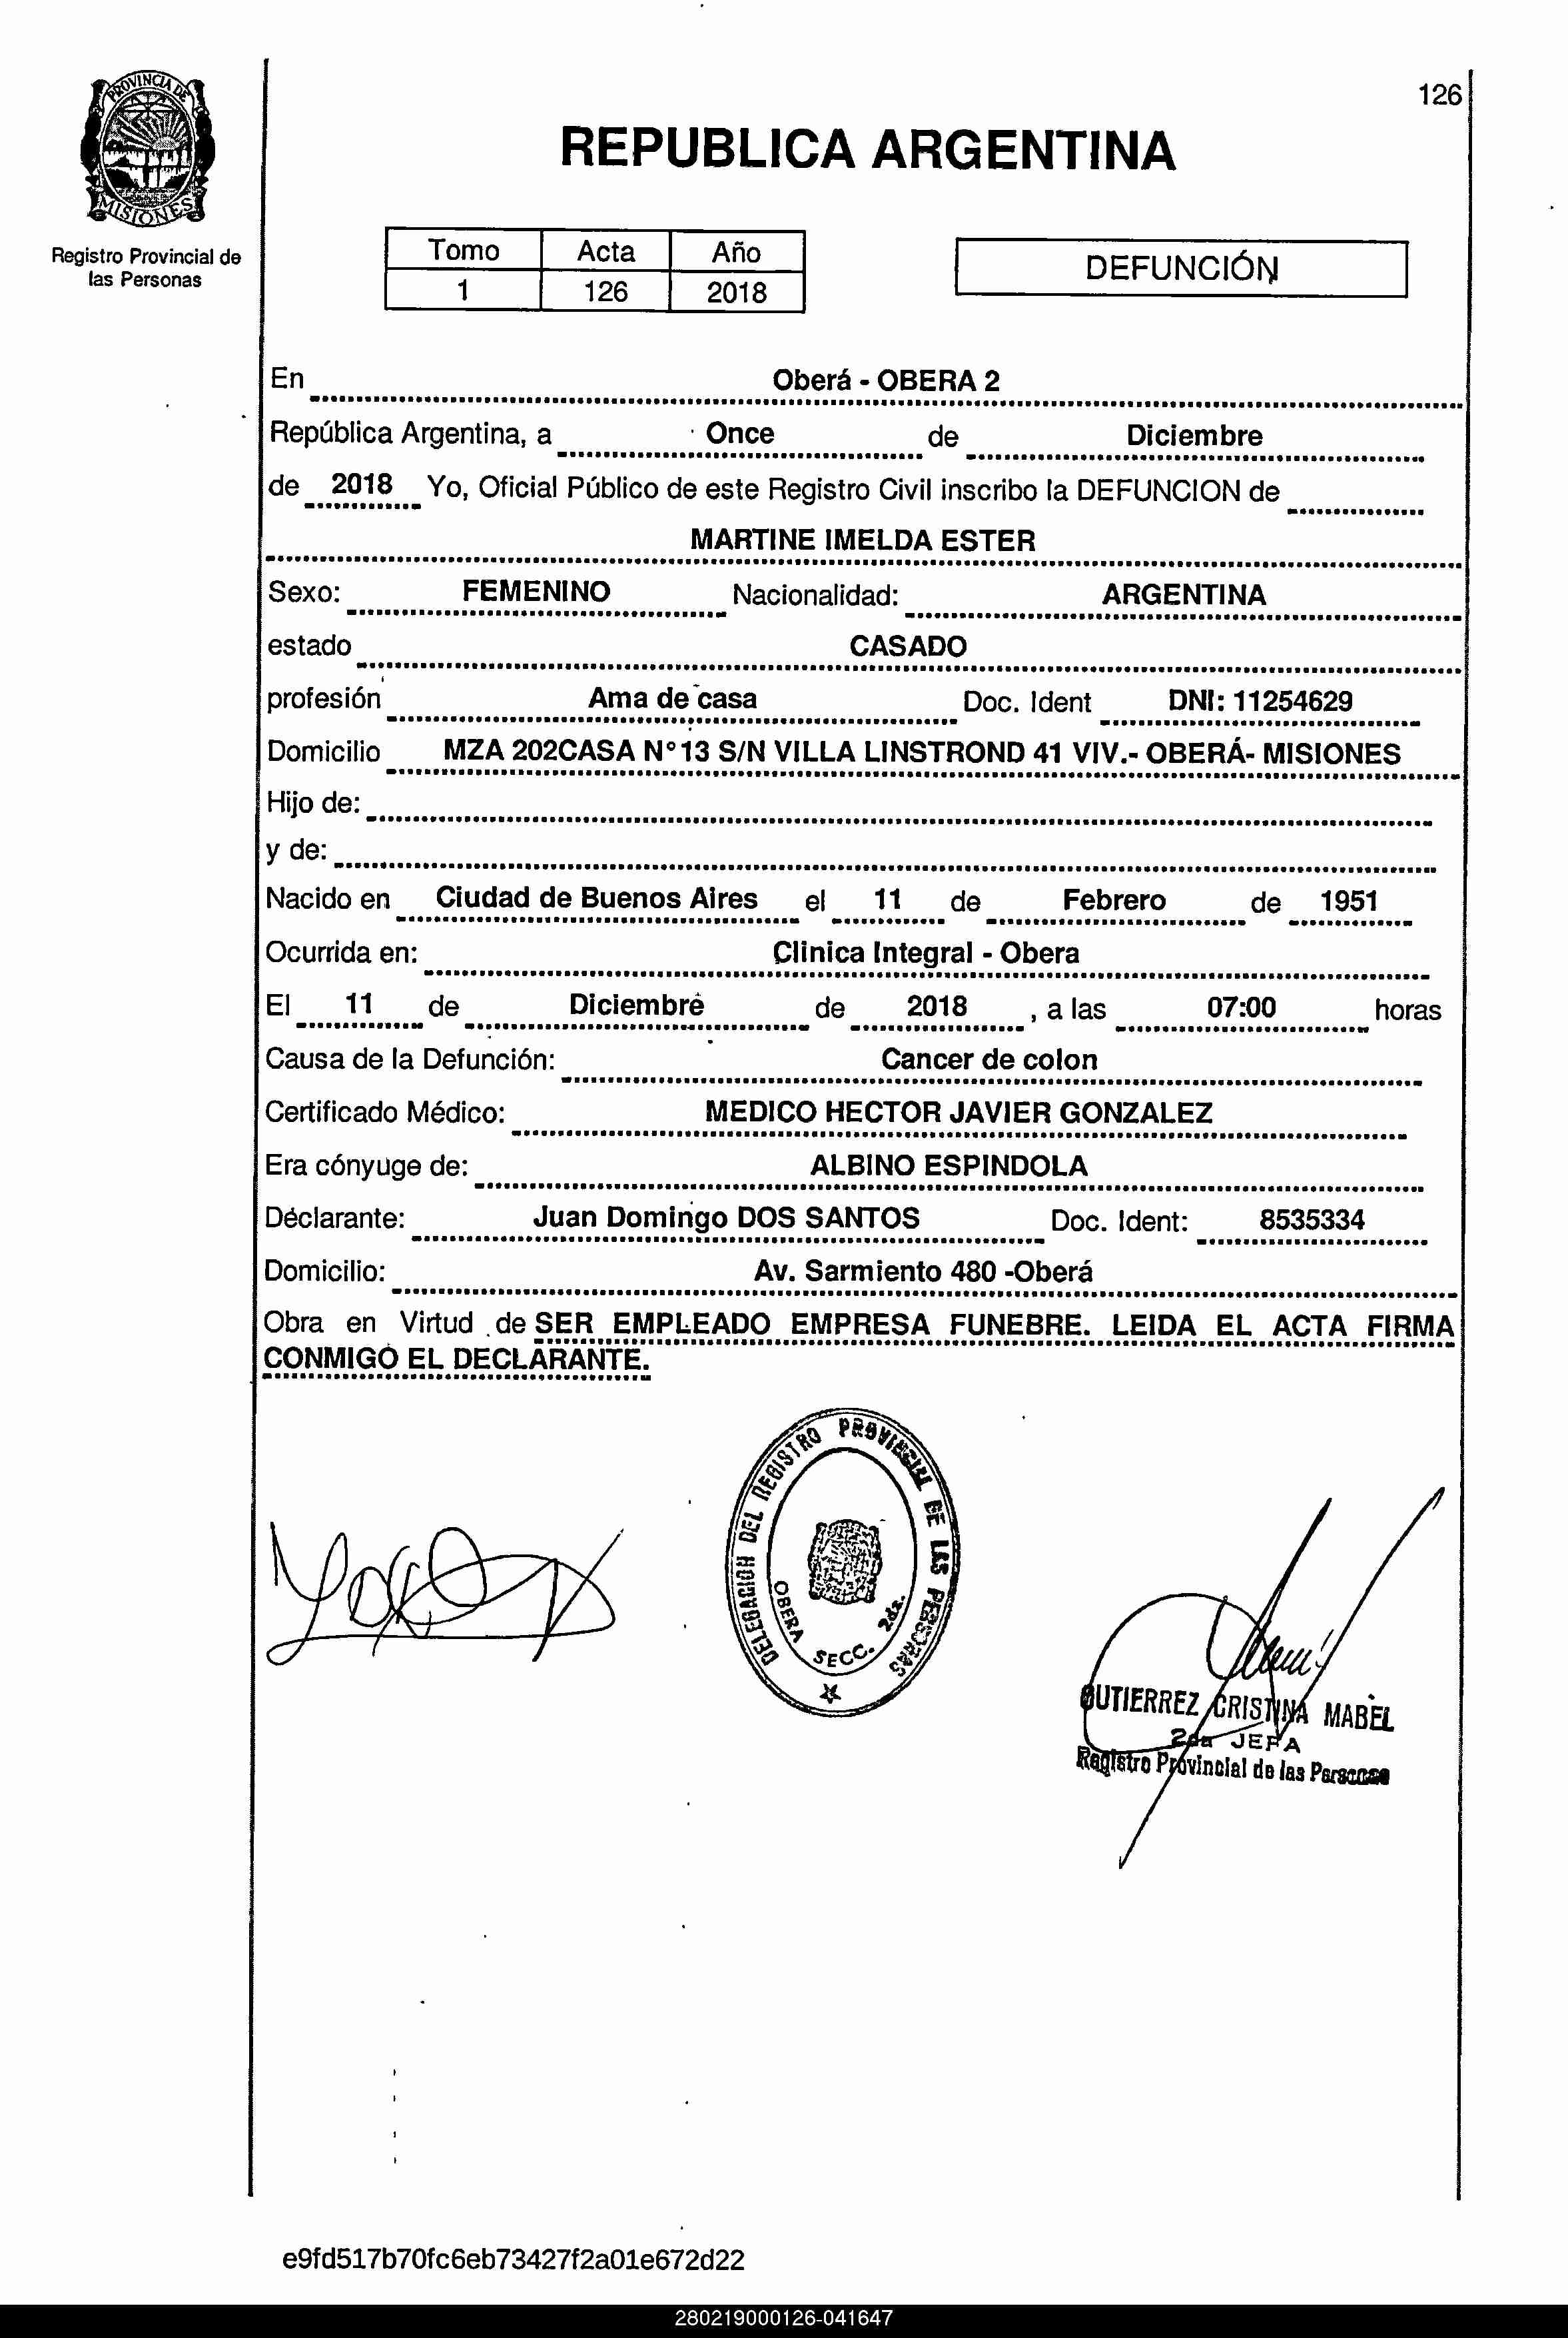 126
PROVINCIA DE
MISIONES
Registro Provincial de
las Personas
REPUBLICA ARGENTINA
Tomo Acta Año
1 126 2018
DEFUNCIÓN
En Oberá - OBERA 2
República Argentina, a Once de Diciembre
de 2018 Yo, Oficial Público de este Registro Civil inscribo la DEFUNCION de
MARTINE IMELDA ESTER
Sexo: FEMENINO Nacionalidad: ARGENTINA
estado CASADO
profesión Ama de casa Doc. Ident DNI: 11254629
Domicilio MZA 202CASA N°13 S/N VILLA LINSTROND 41 VIV.- OBERÁ- MISIONES
Hijo de:
y de:
Nacido en Ciudad de Buenos Aires el 11 de Febrero de 1951
Ocurrida en: Clinica Integral - Obera
El 11 de Diciembre de 2018 , a las 07:00 horas
Causa de la Defunción: Cancer de colon
Certificado Médico: MEDICO HECTOR JAVIER GONZALEZ
Era cónyuge de: ALBINO ESPINDOLA
Declarante: Juan Domingo DOS SANTOS Doc. Ident: 8535334
Domicilio: Av. Sarmiento 480 -Oberá
Obra en Virtud de SER EMPLEADO EMPRESA FUNEBRE. LEIDA EL ACTA FIRMA
CONMIGO EL DECLARANTE.
DELEGACION DEL REGISTRO PROVINCIAL DE LAS PERSONAS
OBERA SECC. 2da.
GUTIERREZ CRISTINA MABEL
2da JEFA
Registro Provincial de las Personas
e9fd517b70fc6eb73427f2a01e672d22
280219000126-041647